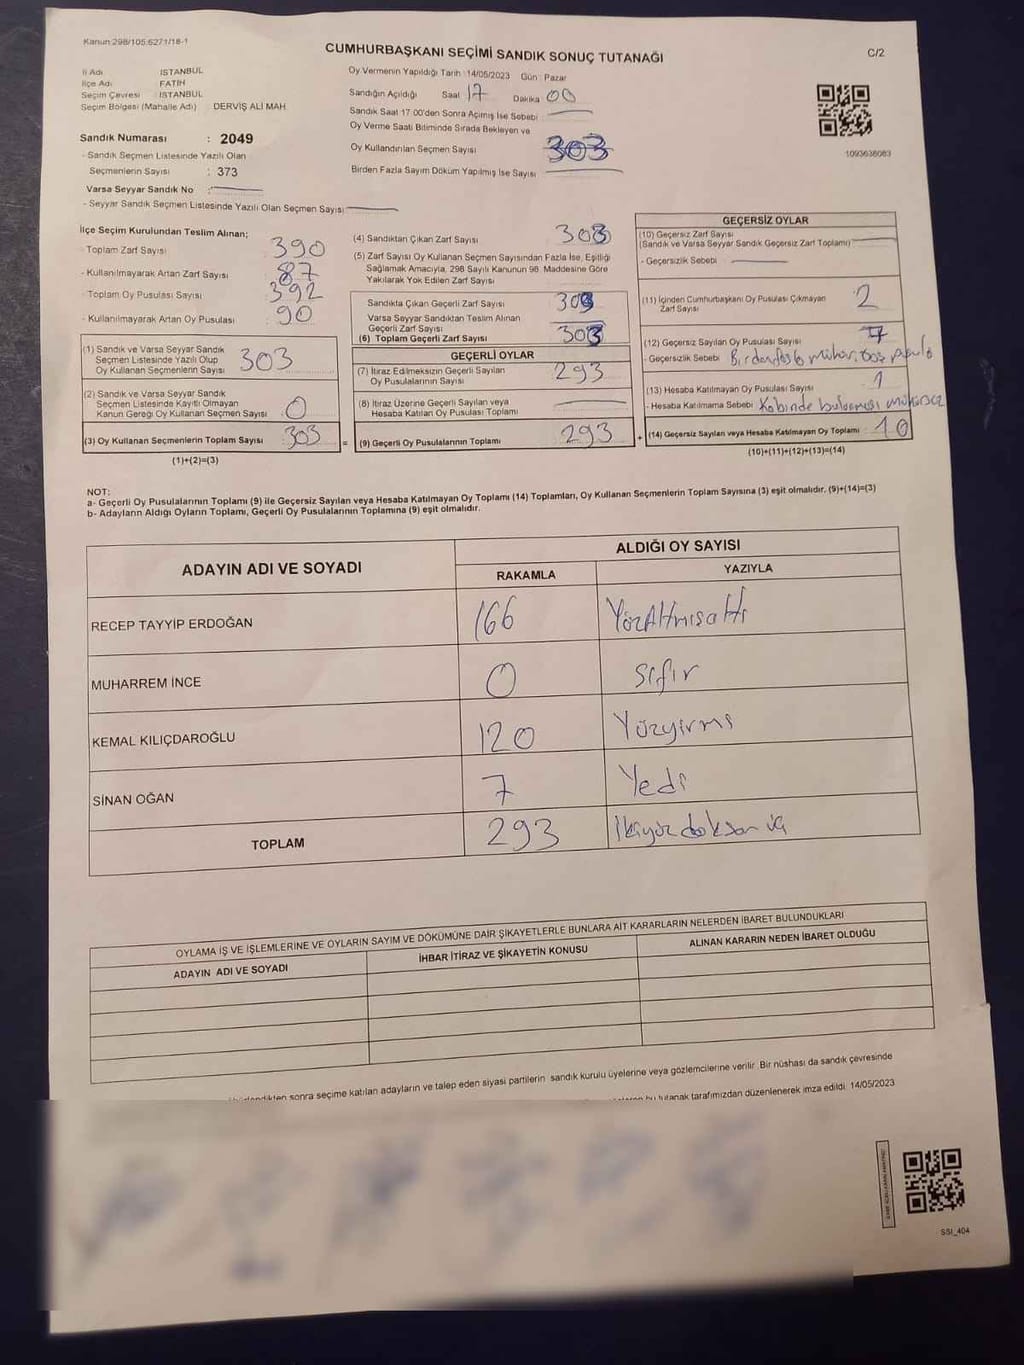 Kanun:298/105;6271/18-1
CUMHURBAŞKANI SEÇİMİ SANDIK SONUÇ TUTANAĞI
C/2
İl Adı : İSTANBUL
İlçe Adı : FATİH
Seçim Çevresi : İSTANBUL
Seçim Bölgesi (Mahalle Adı) : DERVİŞ ALİ MAH.
Sandık Numarası : 2049
- Sandık Seçmen Listesinde Yazılı Olan
Seçmenlerin Sayısı : 373
Varsa Seyyar Sandık No :
- Seyyar Sandık Seçmen Listesinde Yazılı Olan Seçmen Sayısı:
Oy Vermenin Yapıldığı Tarih :14/05/2023 Gün : Pazar
Sandığın Açıldığı Saat 17 Dakika 00
Sandık Saat 17.00'den Sonra Açılmış İse Sebebi :
Oy Verme Saati Bitiminde Sırada Bekleyen ve
Oy Kullandırılan Seçmen Sayısı 303
Birden Fazla Sayım Döküm Yapılmış İse Sayısı
1093638083
İlçe Seçim Kurulundan Teslim Alınan;
- Toplam Zarf Sayısı 390
- Kullanılmayarak Artan Zarf Sayısı 87
- Toplam Oy Pusulası Sayısı 392
- Kullanılmayarak Artan Oy Pusulası 90
(1) Sandık ve Varsa Seyyar Sandık
Seçmen Listesinde Yazılı Olup
Oy Kullanan Seçmenlerin Sayısı 303
(2) Sandık ve Varsa Seyyar Sandık
Seçmen Listesinde Kayıtlı Olmayan
Kanun Gereği Oy Kullanan Seçmen Sayısı 0
(3) Oy Kullanan Seçmenlerin Toplam Sayısı 303 =
(1)+(2)=(3)
(4) Sandıktan Çıkan Zarf Sayısı 303
(5) Zarf Sayısı Oy Kullanan Seçmen Sayısından Fazla İse, Eşitliği
Sağlamak Amacıyla, 298 Sayılı Kanunun 98. Maddesine Göre
Yakılarak Yok Edilen Zarf Sayısı
Sandıkta Çıkan Geçerli Zarf Sayısı 303
Varsa Seyyar Sandıktan Teslim Alınan
Geçerli Zarf Sayısı
(6) Toplam Geçerli Zarf Sayısı 303
GEÇERLİ OYLAR
(7) İtiraz Edilmeksizin Geçerli Sayılan
Oy Pusulalarının Sayısı 293
(8) İtiraz Üzerine Geçerli Sayılan veya
Hesaba Katılan Oy Pusulası Toplamı
(9) Geçerli Oy Pusulalarının Toplamı 293 +
GEÇERSİZ OYLAR
(10) Geçersiz Zarf Sayısı
(Sandık ve Varsa Seyyar Sandık Geçersiz Zarf Toplamı)
- Geçersizlik Sebebi :
(11) İçinden Cumhurbaşkanı Oy Pusulası Çıkmayan
Zarf Sayısı 2
(12) Geçersiz Sayılan Oy Pusulası Sayısı 7
- Geçersizlik Sebebi :
(13) Hesaba Katılmayan Oy Pusulası Sayısı 1
- Hesaba Katılmama Sebebi :
(14) Geçersiz Sayılan veya Hesaba Katılmayan Oy Toplamı 10
(10)+(11)+(12)+(13)=(14)
NOT:
a- Geçerli Oy Pusulalarının Toplamı (9) ile Geçersiz Sayılan veya Hesaba Katılmayan Oy Toplamı (14) Toplamları, Oy Kullanan Seçmenlerin Toplam Sayısına (3) eşit olmalıdır. (9)+(14)=(3)
b- Adayların Aldığı Oyların Toplamı, Geçerli Oy Pusulalarının Toplamına (9) eşit olmalıdır.
ADAYIN ADI VE SOYADI
ALDIĞI OY SAYISI
RAKAMLA YAZIYLA
RECEP TAYYİP ERDOĞAN 166 YüzAltmışaltı
MUHARREM İNCE 0 sıfır
KEMAL KILIÇDAROĞLU 120 Yüzyirmi
SİNAN OĞAN 7 Yedi
TOPLAM 293 İkiyüzdoksan üç
OYLAMA İŞ VE İŞLEMLERİNE VE OYLARIN SAYIM VE DÖKÜMÜNE DAİR ŞİKAYETLERLE BUNLARA AİT KARARLARIN NELERDEN İBARET BULUNDUKLARI
ADAYIN ADI VE SOYADI İHBAR İTİRAZ VE ŞİKAYETİN KONUSU ALINAN KARARIN NEDEN İBARET OLDUĞU
sonra seçime katılan adayların ve talep eden siyasi partilerin sandık kurulu üyelerine veya gözlemcilerine verilir. Bir nüshası da sandık çevresinde
bu tutanak tarafımızdan düzenlenerek imza edildi. 14/05/2023
SSI_404